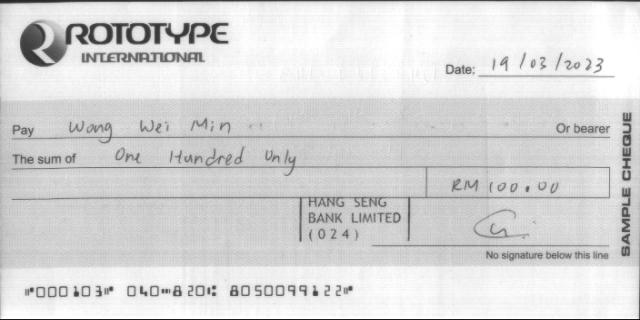 ROTOTYPE
INTERNATIONAL
Date: 19/03/2023
Pay Wong Wei Min Or bearer
The sum of One Hundred Only
RM 100.00
HANG SENG
BANK LIMITED
(024)
No signature below this line
SAMPLE CHEQUE
⑈000103⑈ 040⑉820⑆ 8050099122⑈